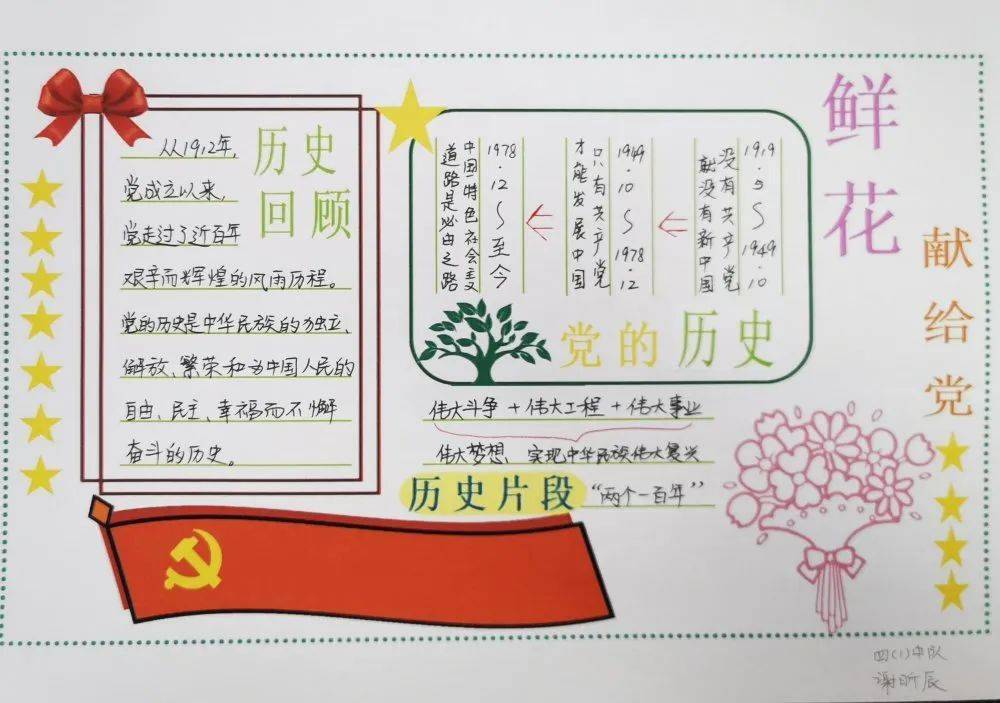 鲜花
献给党
历史
回顾
从1912年,
党成立以来,
党走过了近百年
艰辛而辉煌的风雨历程。
党的历史是中华民族的独立、
解放、繁荣和为中国人民的
自由、民主、幸福而不懈
奋斗的历史。
1919.5~1949.10
没有共产党
就没有新中国
1949.10~1978.12
只有共产党
才能发展中国
1978.12~至今
中国特色社会主义
道路是必由之路
党的历史
伟大斗争+伟大工程+伟大事业
伟大梦想、实现中华民族伟大复兴
历史片段
“两个一百年”
四(1)中队
谢昕辰